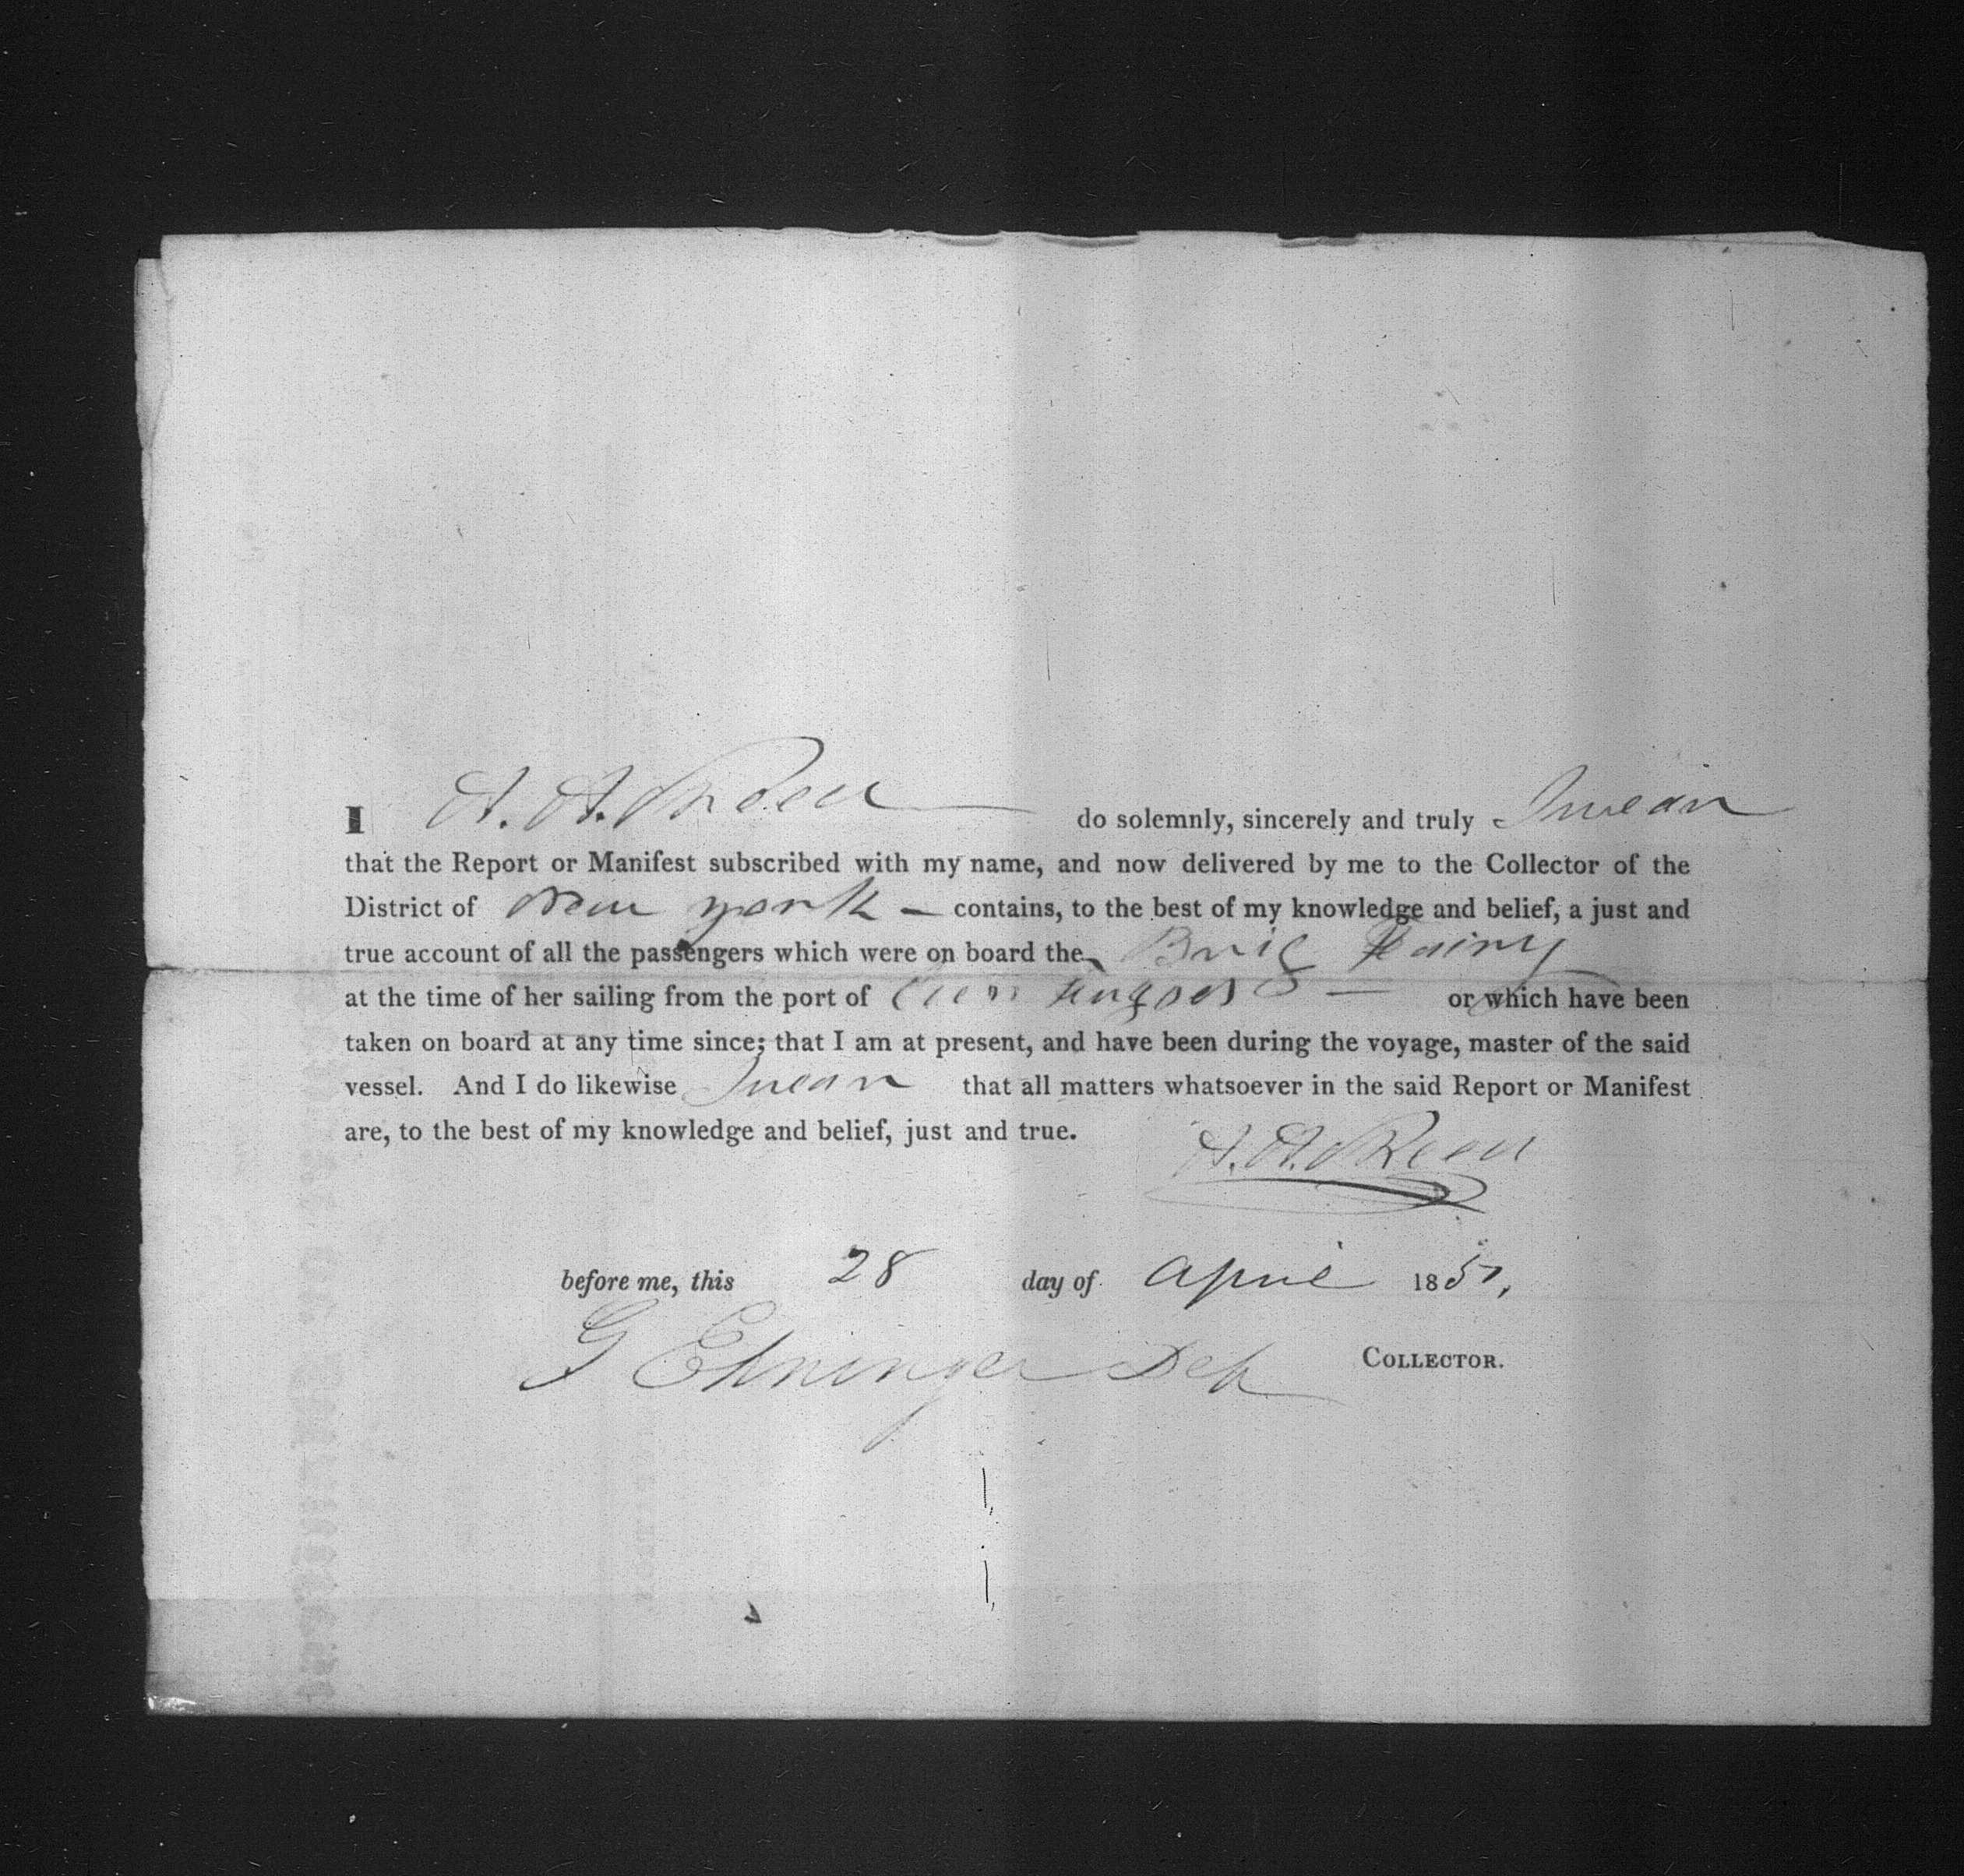 I A. A. Reed do solemnly, sincerely and truly Swear
that the Report or Manifest subscribed with my name, and now delivered by me to the Collector of the
District of New York — contains, to the best of my knowledge and belief, a just and
true account of all the passengers which were on board the Brig
at the time of her sailing from the port of or which have been
taken on board at any time since; that I am at present, and have been during the voyage, master of the said
vessel. And I do likewise Swear that all matters whatsoever in the said Report or Manifest
are, to the best of my knowledge and belief, just and true.
A. A. Reed
before me, this 28 day of April 1851,
G Ehninger Dep COLLECTOR.